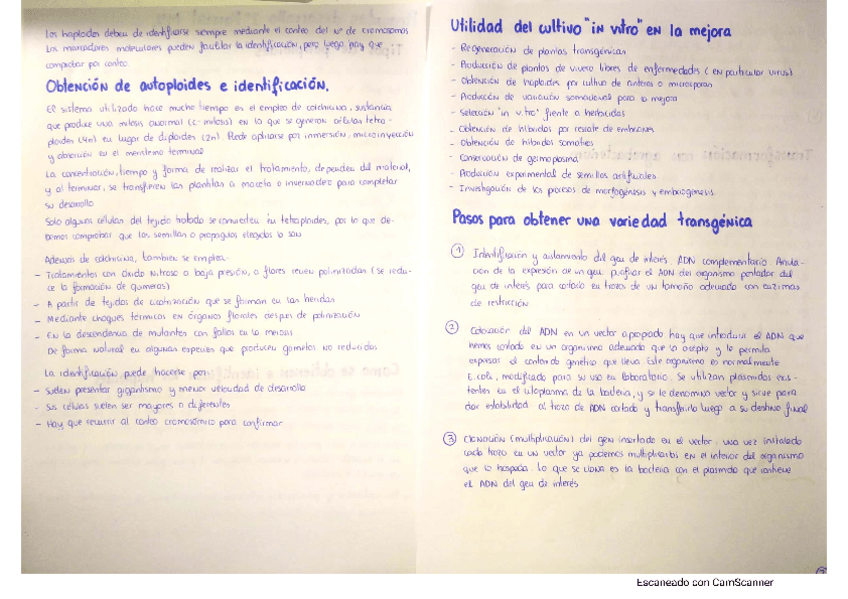 Los haploides deben de identificarse siempre mediante el conteo del nº de cromosomas
Los marcadores moleculares pueden facilitar la identificación, pero luego hay que
comprobar por conteo.
Obtención de autoploides e identificación.
El sistema utilizado hace mucho tiempo es el empleo de colchicina, sustancia
que produce una mitosis anormal (c-mitosis) en la que se generan células tetra-
ploides (4n) en lugar de diploides (2n). Puede aplicarse por inmersión, microinyección
y absorción en el meristemo terminal
La concentración, tiempo y forma de realizar el tratamiento, dependen del material,
y al terminar, se transfieren las plantitas a maceta o invernadero para completar
su desarrollo
Solo algunas células del tejido tratado se convierten en tetraploides, por lo que de-
bemos comprobar que las semillas o propagulos elegidos lo son
Además de colchicina, también se emplea:
- Tratamientos con Óxido Nitroso a baja presión, a flores recién polinizadas (se redu-
ce la formación de quimeras)
- A partir de tejidos de cicatrización que se forman en las heridas
- Mediante choques térmicos en órganos florales después de polinización
- En la descendencia de mutantes con fallos en la meiosis
De forma natural en algunas especies que producen gametos no reducidos
La identificación puede hacerse por:
- Suelen presentar gigantismo y menor velocidad de desarrollo
- Sus células suelen ser mayores o diferentes
- Hay que recurrir al conteo cromosómico para confirmar
Utilidad del cultivo "in vitro" en la mejora
- Regeneración de plantas transgénicas
- Producción de plantas de vivero libres de enfermedades (en particular virus)
- Obtención de haploides por cultivo de anteras o microsporas
- Producción de variación somaclonal para la mejora
- Selección "in vitro" frente a herbicidas
- Obtención de híbridos por rescate de embriones
- Obtención de híbridos somáticos
- Conservación de germoplasma
- Producción experimental de semillas artificiales
- Investigación de los procesos de morfogénesis y embriogénesis
Pasos para obtener una variedad transgénica
① Identificación y aislamiento del gen de interés. ADN complementario. Anula-
ción de la expresión de un gen. purificar el ADN del organismo portador del
gen de interés para cortarlo en trozos de un tamaño adecuado con enzimas
de restricción
② Colocación del ADN en un vector apropiado hay que introducir el ADN que
hemos cortado en un organismo adecuado que lo acepte y le permita
expresar el contenido genético que lleva. Este organismo es normalmente
E.coli, modificado para su uso en laboratorio. Se utilizan plasmidos exis-
tentes en el citoplasma de la bacteria, y se le denomina vector y sirve para
dar estabilidad al trozo de ADN cortado y transferirlo luego a su destino final
③ Clonación (multiplicación) del gen insertado en el vector. una vez instalado
cada trozo en un vector ya podemos multiplicarlos en el interior del organismo
que lo hospeda. Lo que se clona es la bacteria con el plasmido que contiene
el ADN del gen de interés
Escaneado con CamScanner